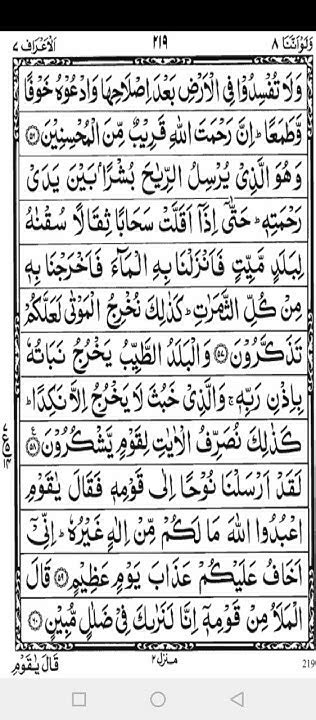 وَلَوْ اَنَّنَا ۸ ۲۱۹ اَلْاَعْرَاف ۷
وَلَا تُفْسِدُوْا فِی الْاَرْضِ بَعْدَ اِصْلَاحِهَا وَادْعُوْهُ خَوْفًا
وَّطَمَعًا ؕ اِنَّ رَحْمَتَ اللّٰهِ قَرِیْبٌ مِّنَ الْمُحْسِنِیْنَ ﴿۵۶﴾
وَهُوَ الَّذِیْ یُرْسِلُ الرِّیٰحَ بُشْرًۢا بَیْنَ یَدَیْ
رَحْمَتِهٖ ؕ حَتّٰۤی اِذَاۤ اَقَلَّتْ سَحَابًا ثِقَالًا سُقْنٰهُ
لِبَلَدٍ مَّیِّتٍ فَاَنْزَلْنَا بِهِ الْمَآءَ فَاَخْرَجْنَا بِهٖ
مِنْ كُلِّ الثَّمَرٰتِ ؕ كَذٰلِكَ نُخْرِجُ الْمَوْتٰی لَعَلَّكُمْ
تَذَكَّرُوْنَ ﴿۵۷﴾ وَالْبَلَدُ الطَّیِّبُ یَخْرُجُ نَبَاتُهٗ
بِاِذْنِ رَبِّهٖ ۚ وَالَّذِیْ خَبُثَ لَا یَخْرُجُ اِلَّا نَكِدًا ؕ
كَذٰلِكَ نُصَرِّفُ الْاٰیٰتِ لِقَوْمٍ یَّشْكُرُوْنَ ﴿۵۸﴾
لَقَدْ اَرْسَلْنَا نُوْحًا اِلٰی قَوْمِهٖ فَقَالَ یٰقَوْمِ
اعْبُدُوا اللّٰهَ مَا لَكُمْ مِّنْ اِلٰهٍ غَیْرُهٗ ؕ اِنِّیْۤ
اَخَافُ عَلَیْكُمْ عَذَابَ یَوْمٍ عَظِیْمٍ ﴿۵۹﴾ قَالَ
الْمَلَاُ مِنْ قَوْمِهٖۤ اِنَّا لَنَرٰىكَ فِیْ ضَلٰلٍ مُّبِیْنٍ ﴿۶۰﴾
قَالَ یٰقَوْمِ منزل ۲ 219